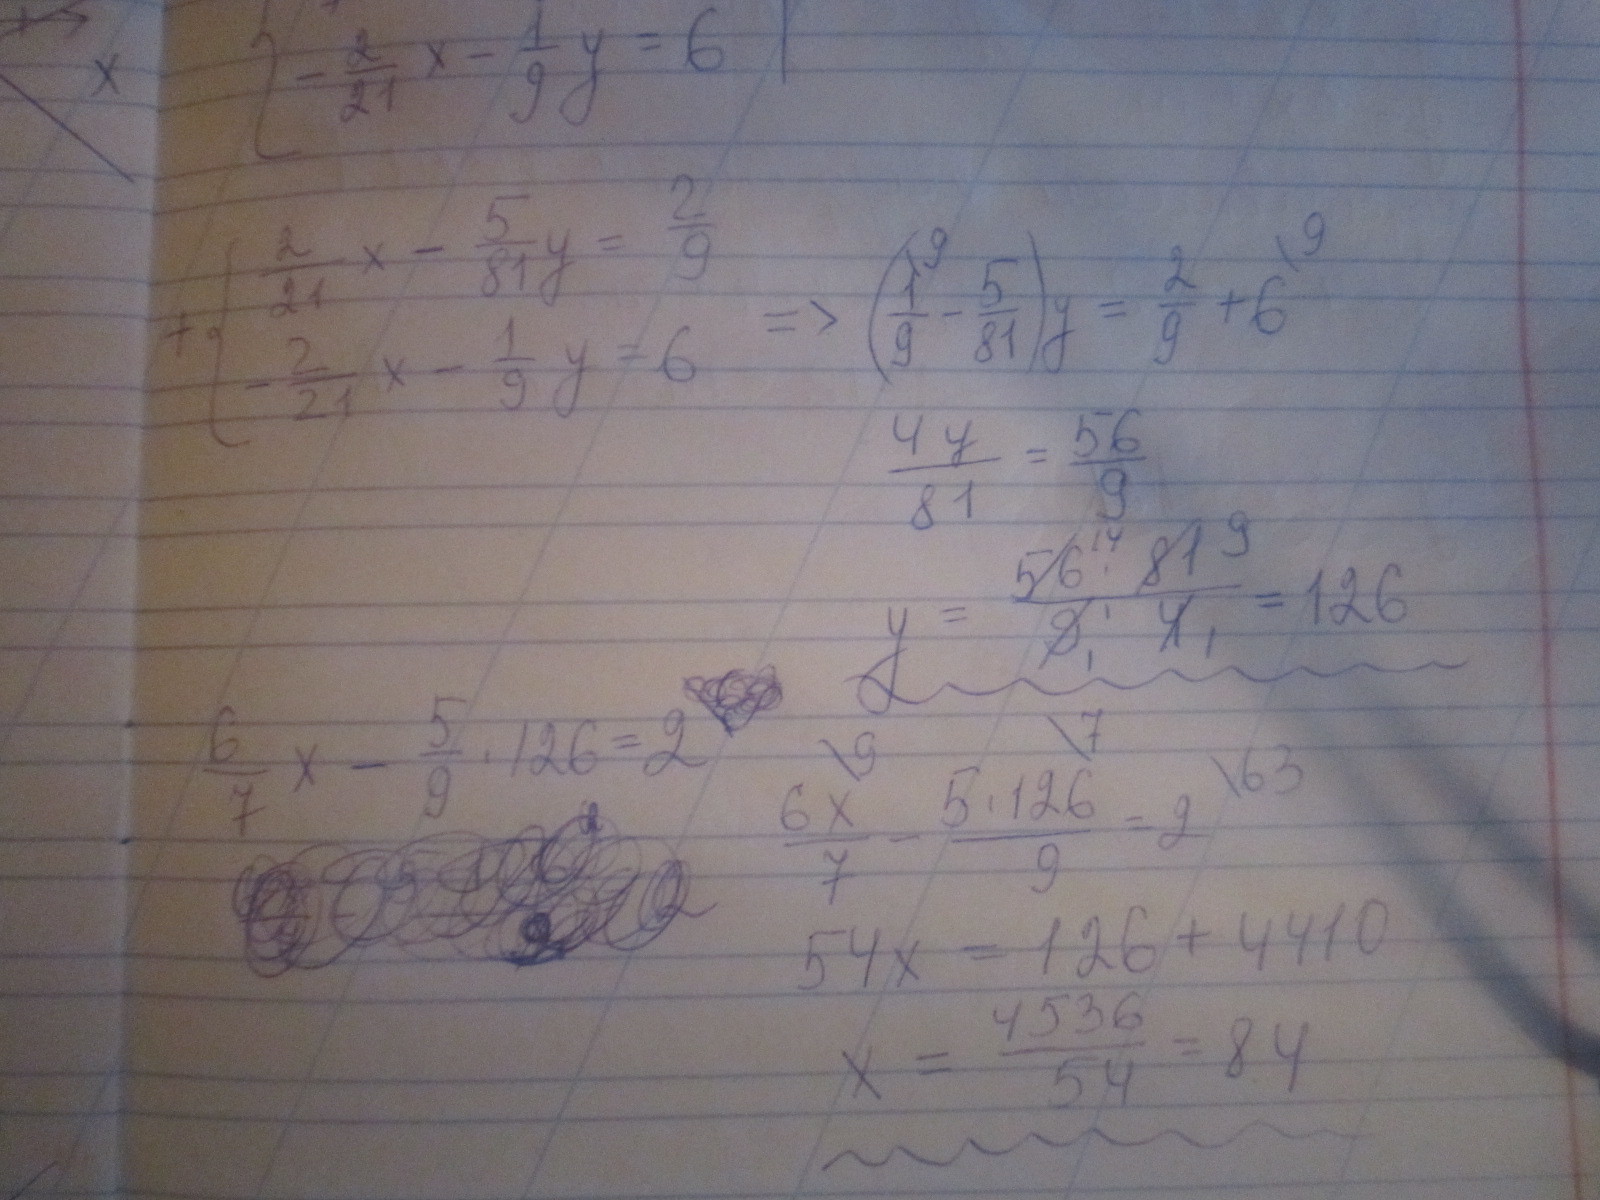 x
{ -2/21 x - 1/9 y = 6
+ { 2/21 x - 5/81 y = 2/9
-2/21 x - 1/9 y = 6
=> (1/9 \9 - 5/81) y = 2/9 + 6 \9
4y/81 = 56/9
y = 56 14 · 81 9 / 9 1 · 4 1 = 126
6/7 x - 5/9 · 126 = 2
6x/7 \9 - 5·126/9 \7 = 2 \63
54x = 126 + 4410
x = 4536/54 = 84